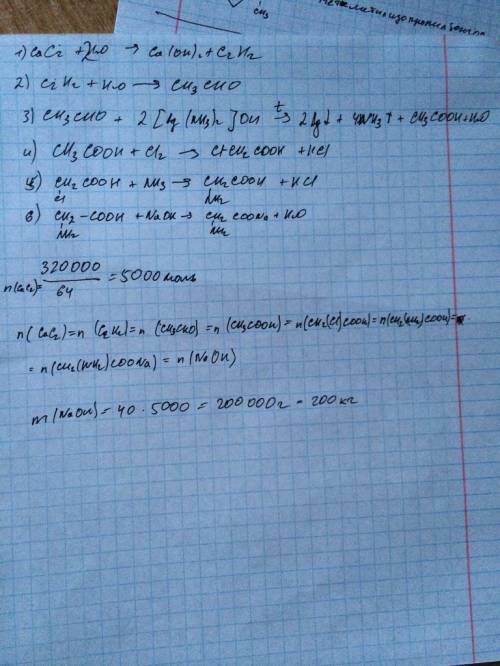 CH3
метилизопропил
1) CaC2 + 2H2O → Ca(OH)2 + C2H2
2) C2H2 + H2O → CH3CHO
3) CH3CHO + 2[Ag(NH3)2]OH t→ 2Ag↓ + 4NH3↑ + CH3COOH + H2O
4) CH3COOH + Cl2 → Cl+CH2COOH + HCl
5) CH2COOH + NH3 → CH2COOH + HCl
Cl NH2
6) CH2-COOH + NaOH → CH2COONa + H2O
NH2 NH2
n(CaC2)= 320000/64 = 5000 моль
n(CaC2)=n(C2H2)=n(CH3CHO)=n(CH3COOH)=n(CH2(Cl)COOH)=n(CH2(NH2)COOH)=
=n(CH2(NH2)COONa)=n(NaOH)
m(NaOH)=40·5000=200000г=200кг